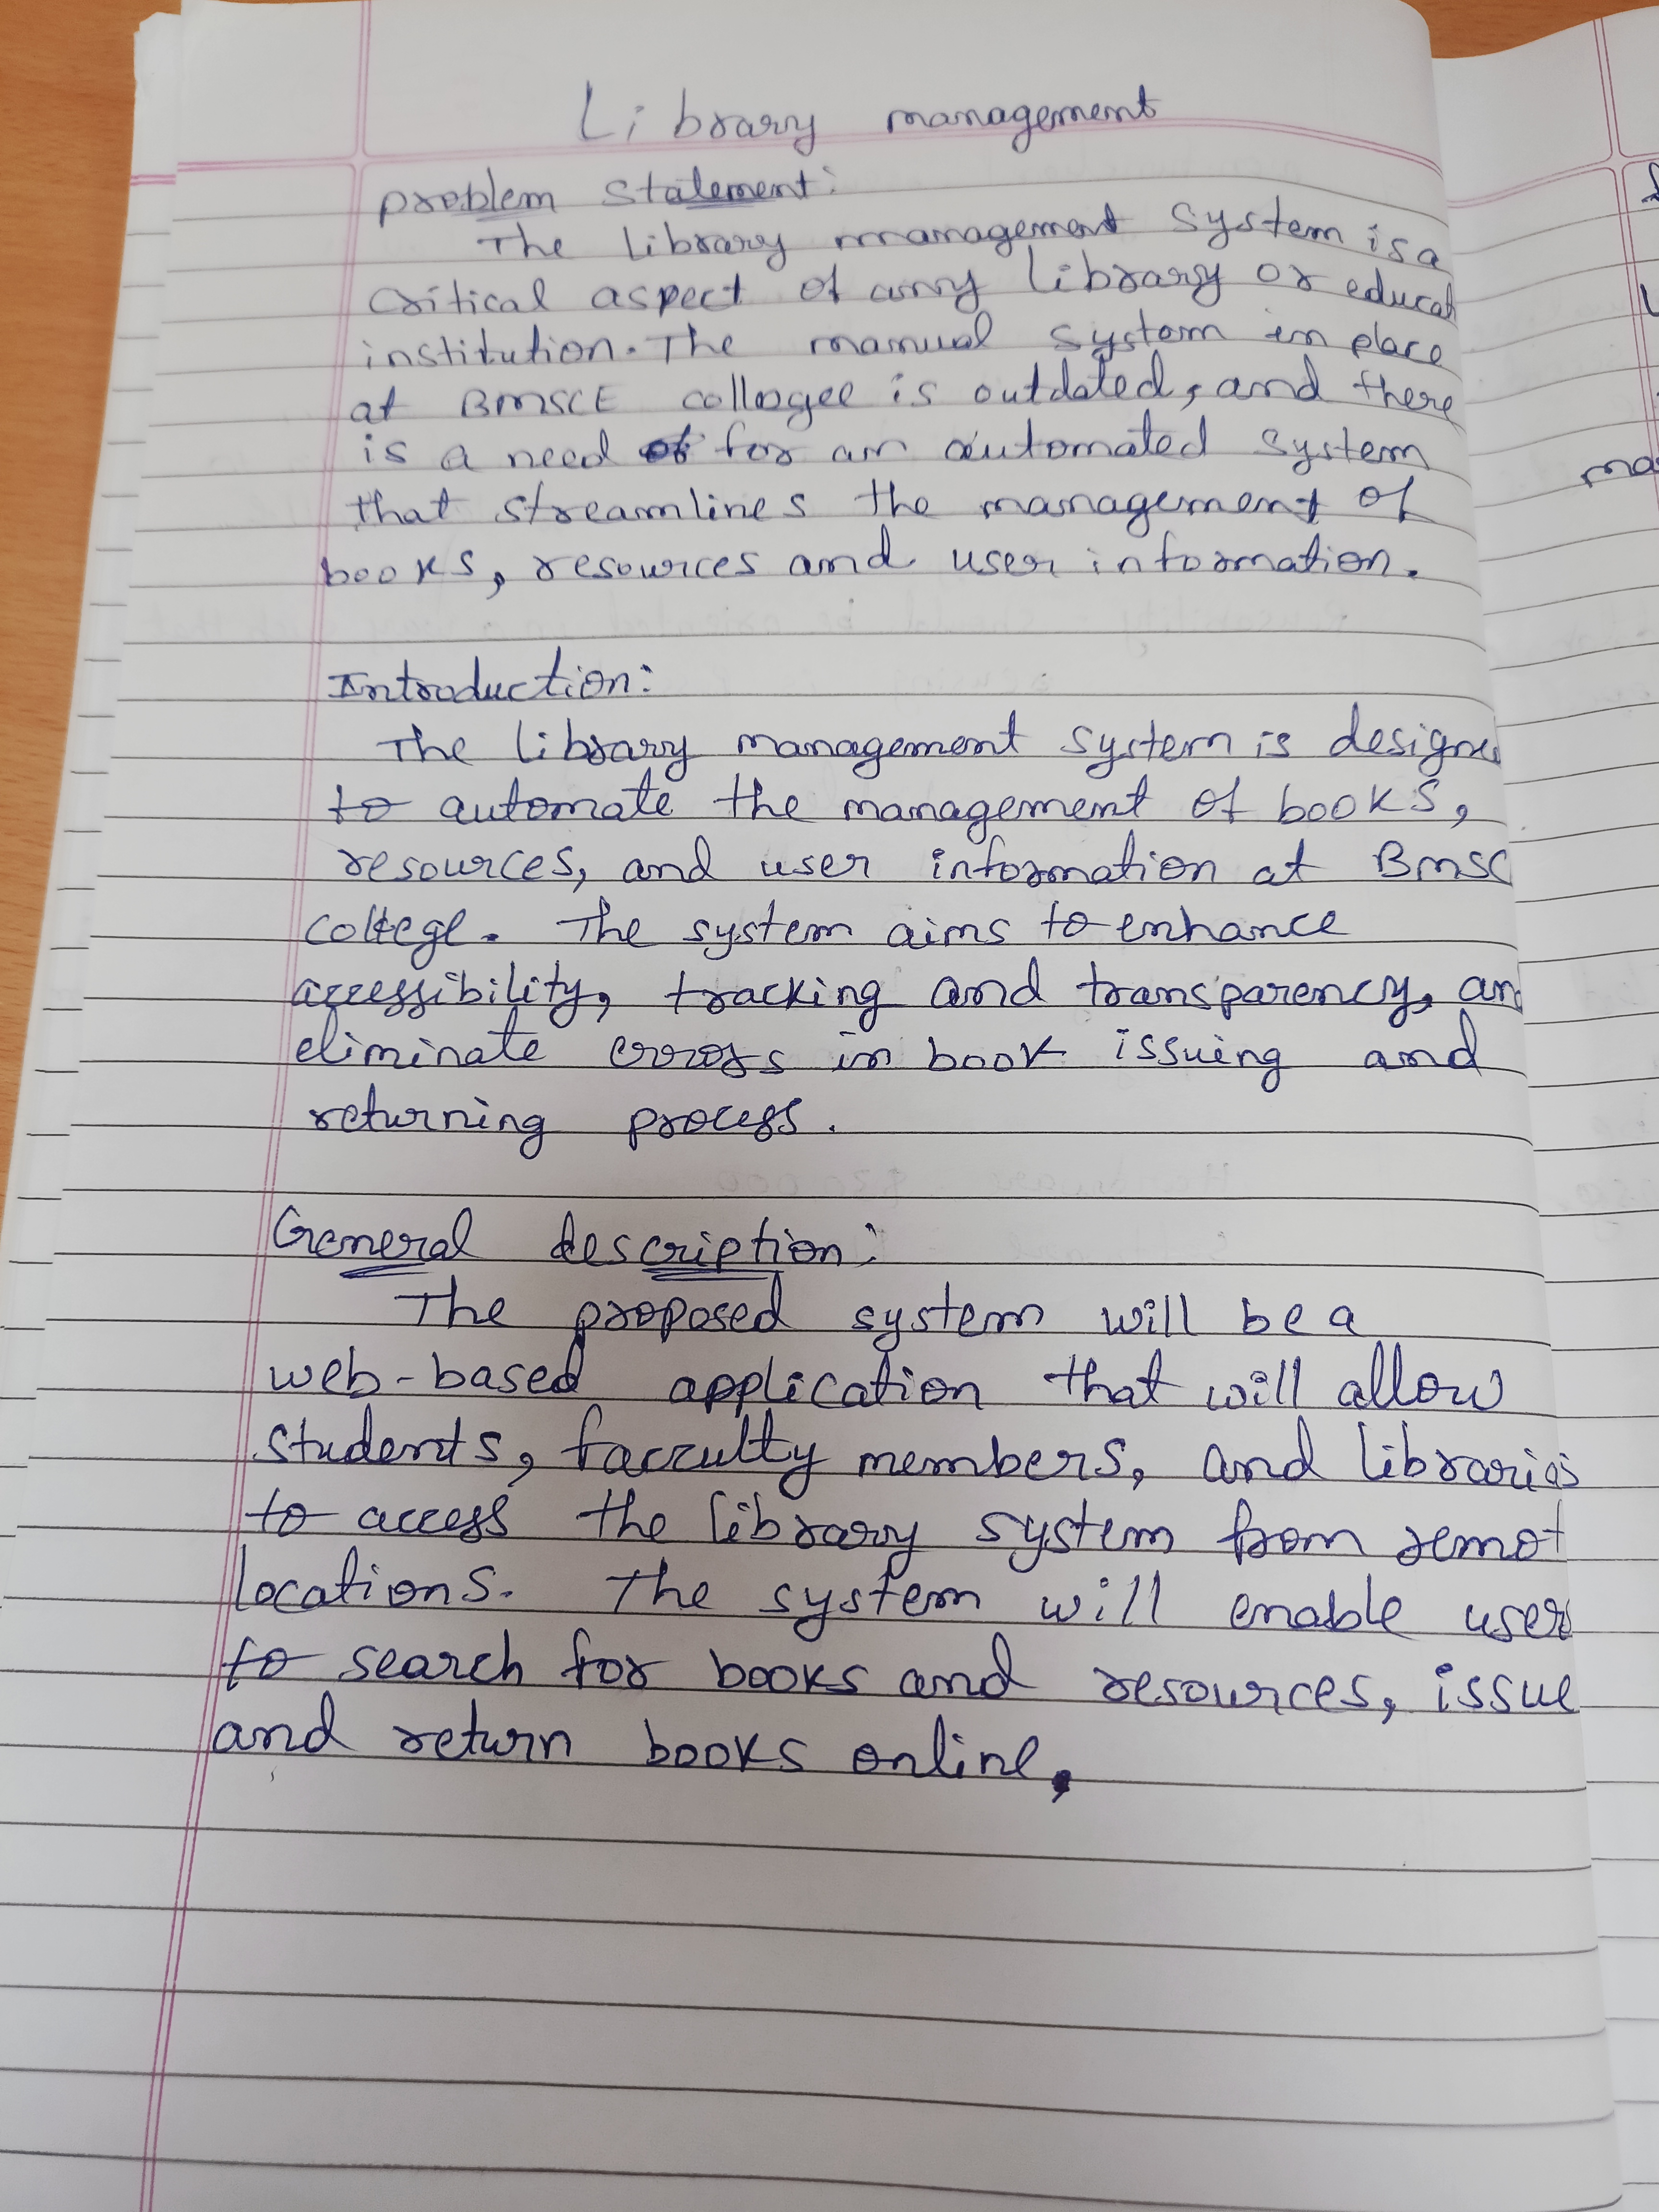 Library management
problem statement:
The library management system is a
critical aspect of any library or educat
institution. The manual system in place
at BMSCE collogee is outdated, and there
is a need for an automated system
that streamlines the management of
books, resources and user information.
Introduction:
The library management system is designe
to automate the management of books,
resources, and user information at BMSC
college. The system aims to enhance
accessibility, tracking and transparency, an
eliminate errors in book issuing and
returning process.
General description:
The proposed system will be a
web-based application that will allow
students, facculty members, and
to access the library system from remot
locations. The system will enable user
to search for books and resources, issue
and return books online.
ma